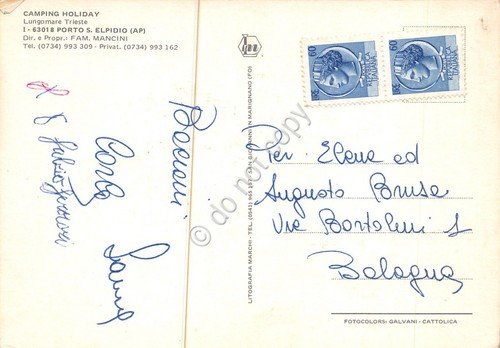 CAMPING HOLIDAY
Lungomare Trieste
I - 63018 PORTO S. ELPIDIO (AP)
Dir. e Propr.: FAM. MANCINI
Tel. (0734) 993 309 - Privat. (0734) 993 162
Bacioni
Carla
LITOGRAFIA MARCHI - TEL. (0541) 955
SAN GIOVANNI IN MARIGNANO (FO)
Per Elena ed
Augusto Bruse
Via Bortolini 1
Bologna
FOTOCOLORS: GALVANI - CATTOLICA
60
60
do not copy